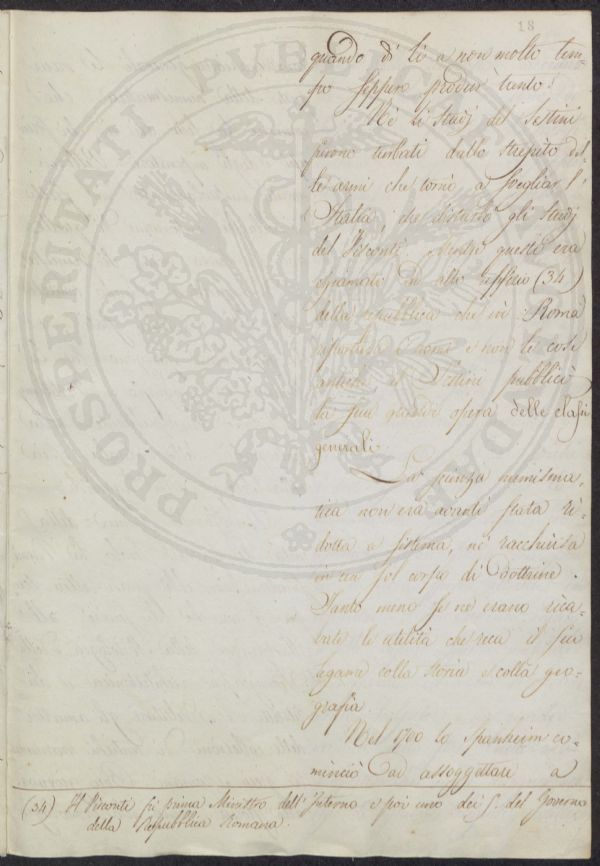 18
quando di lì a non molto tem-
po seppero produr tento!
Nè li studj del Sestini
furono turbati dallo strepito del-
le armi che tornò a svegliar l'
Italia, che disturbò gli studj
del Visconti. Mentre questi era
chiamato ad alto Uffizio (34)
della repubblica che in Roma
i nomi e non le cose
antiche il Sestini pubblicò
la sua grande opera delle classi
generali.
La scienza numisma-
tica non era avanti stata ri-
dotta a sistema, nè racchiusa
in un sol corpo di Dottrine.
Tanto meno se ne erano rica-
vate le utilità che reca il suo
legame colla storia e colla geo-
grafia.
Nel 1700 lo Spanheim co-
minciò ad assoggettare a
(34) Il Visconti fu prima Ministro dell' Interno e poi uno dei 5. del Governo
della Repubblica Romana.
PROSPERITATI PUBLICAE